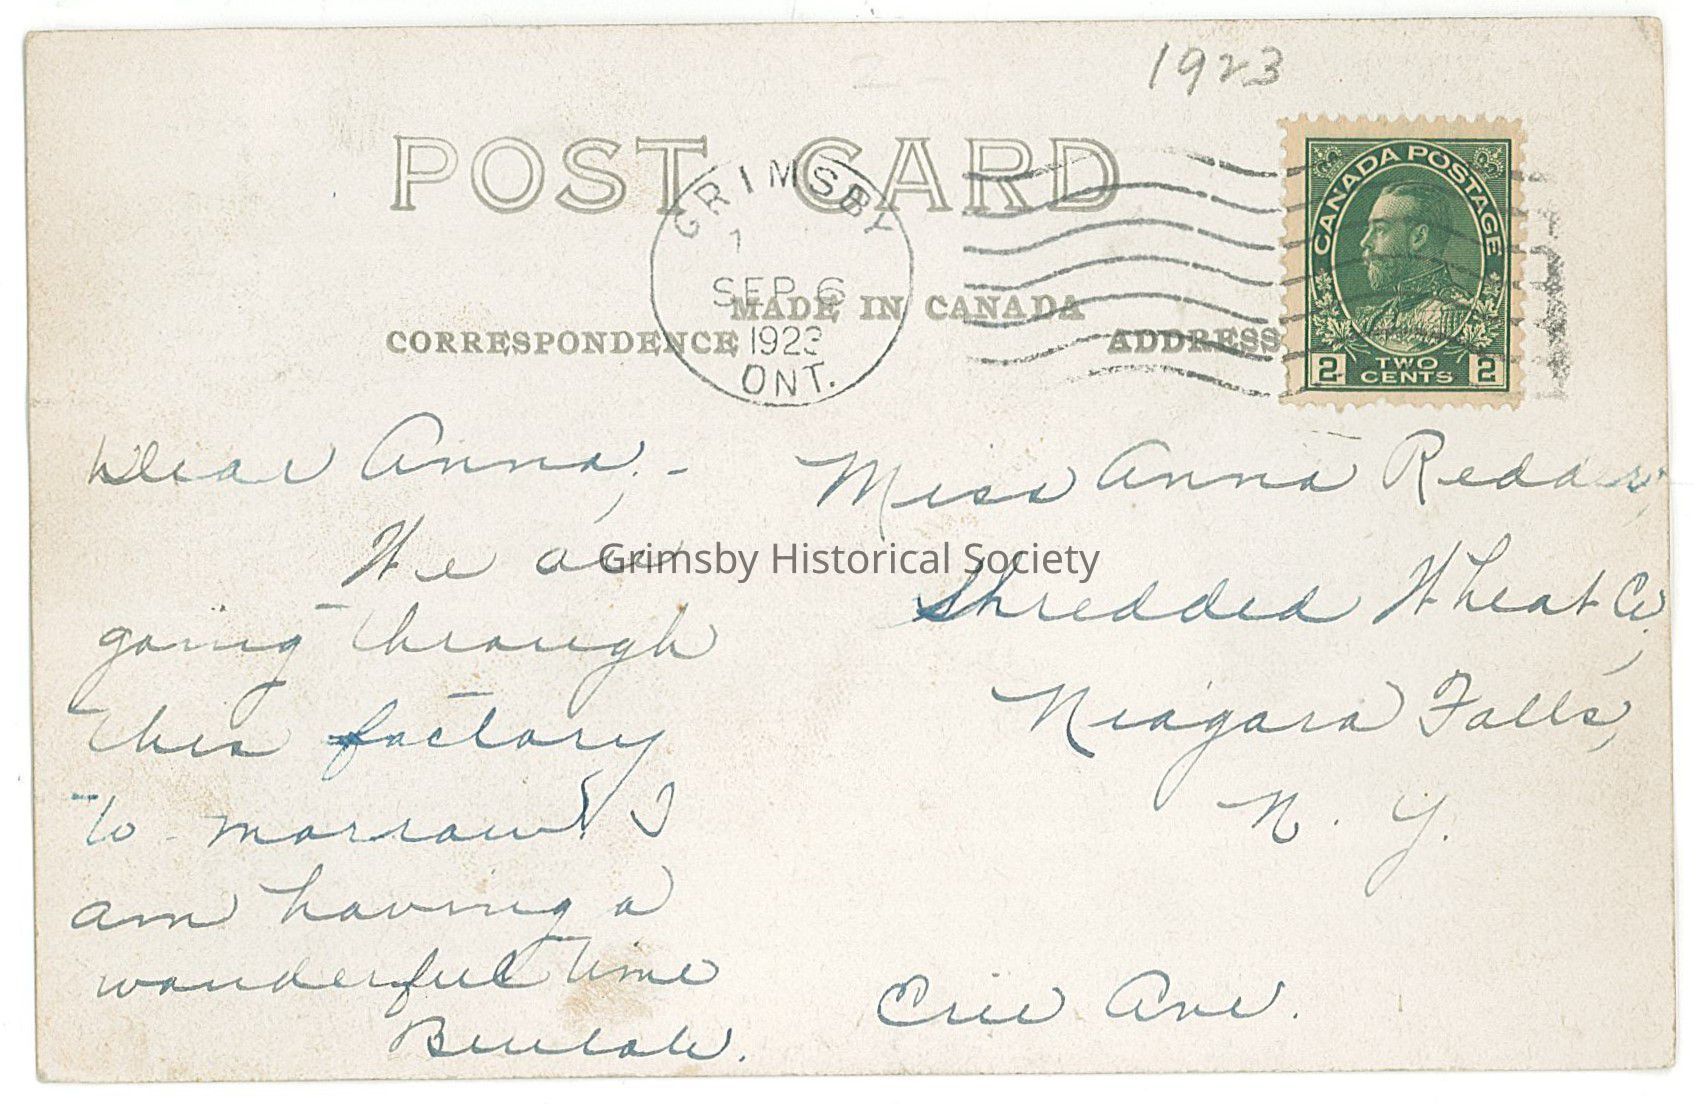 1923
POST CARD
GRIMSBY
1
SEP 6
1923
ONT.
CANADA POSTAGE
2 TWO CENTS 2
MADE IN CANADA
CORRESPONDENCE
ADDRESS
Dear Anna,-
We are
going through
this factory
to-morrow. I
am having a
wonderful time
Beulah.
Miss Anna
Shredded Wheat Co,
Niagara Falls,
N. Y.
Erie Ave.
Grimsby Historical Society